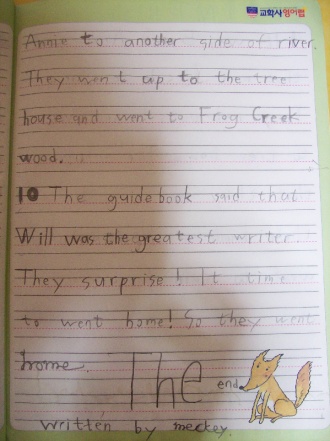 교학사영어랩
Annie to another side of river.
They went up to the tree
house and went to Frog Creek
wood.
10 The guidebook said that
Will was the greatest writer.
They surprise! It time
to went home! So they went
home. The end
written by meckey.